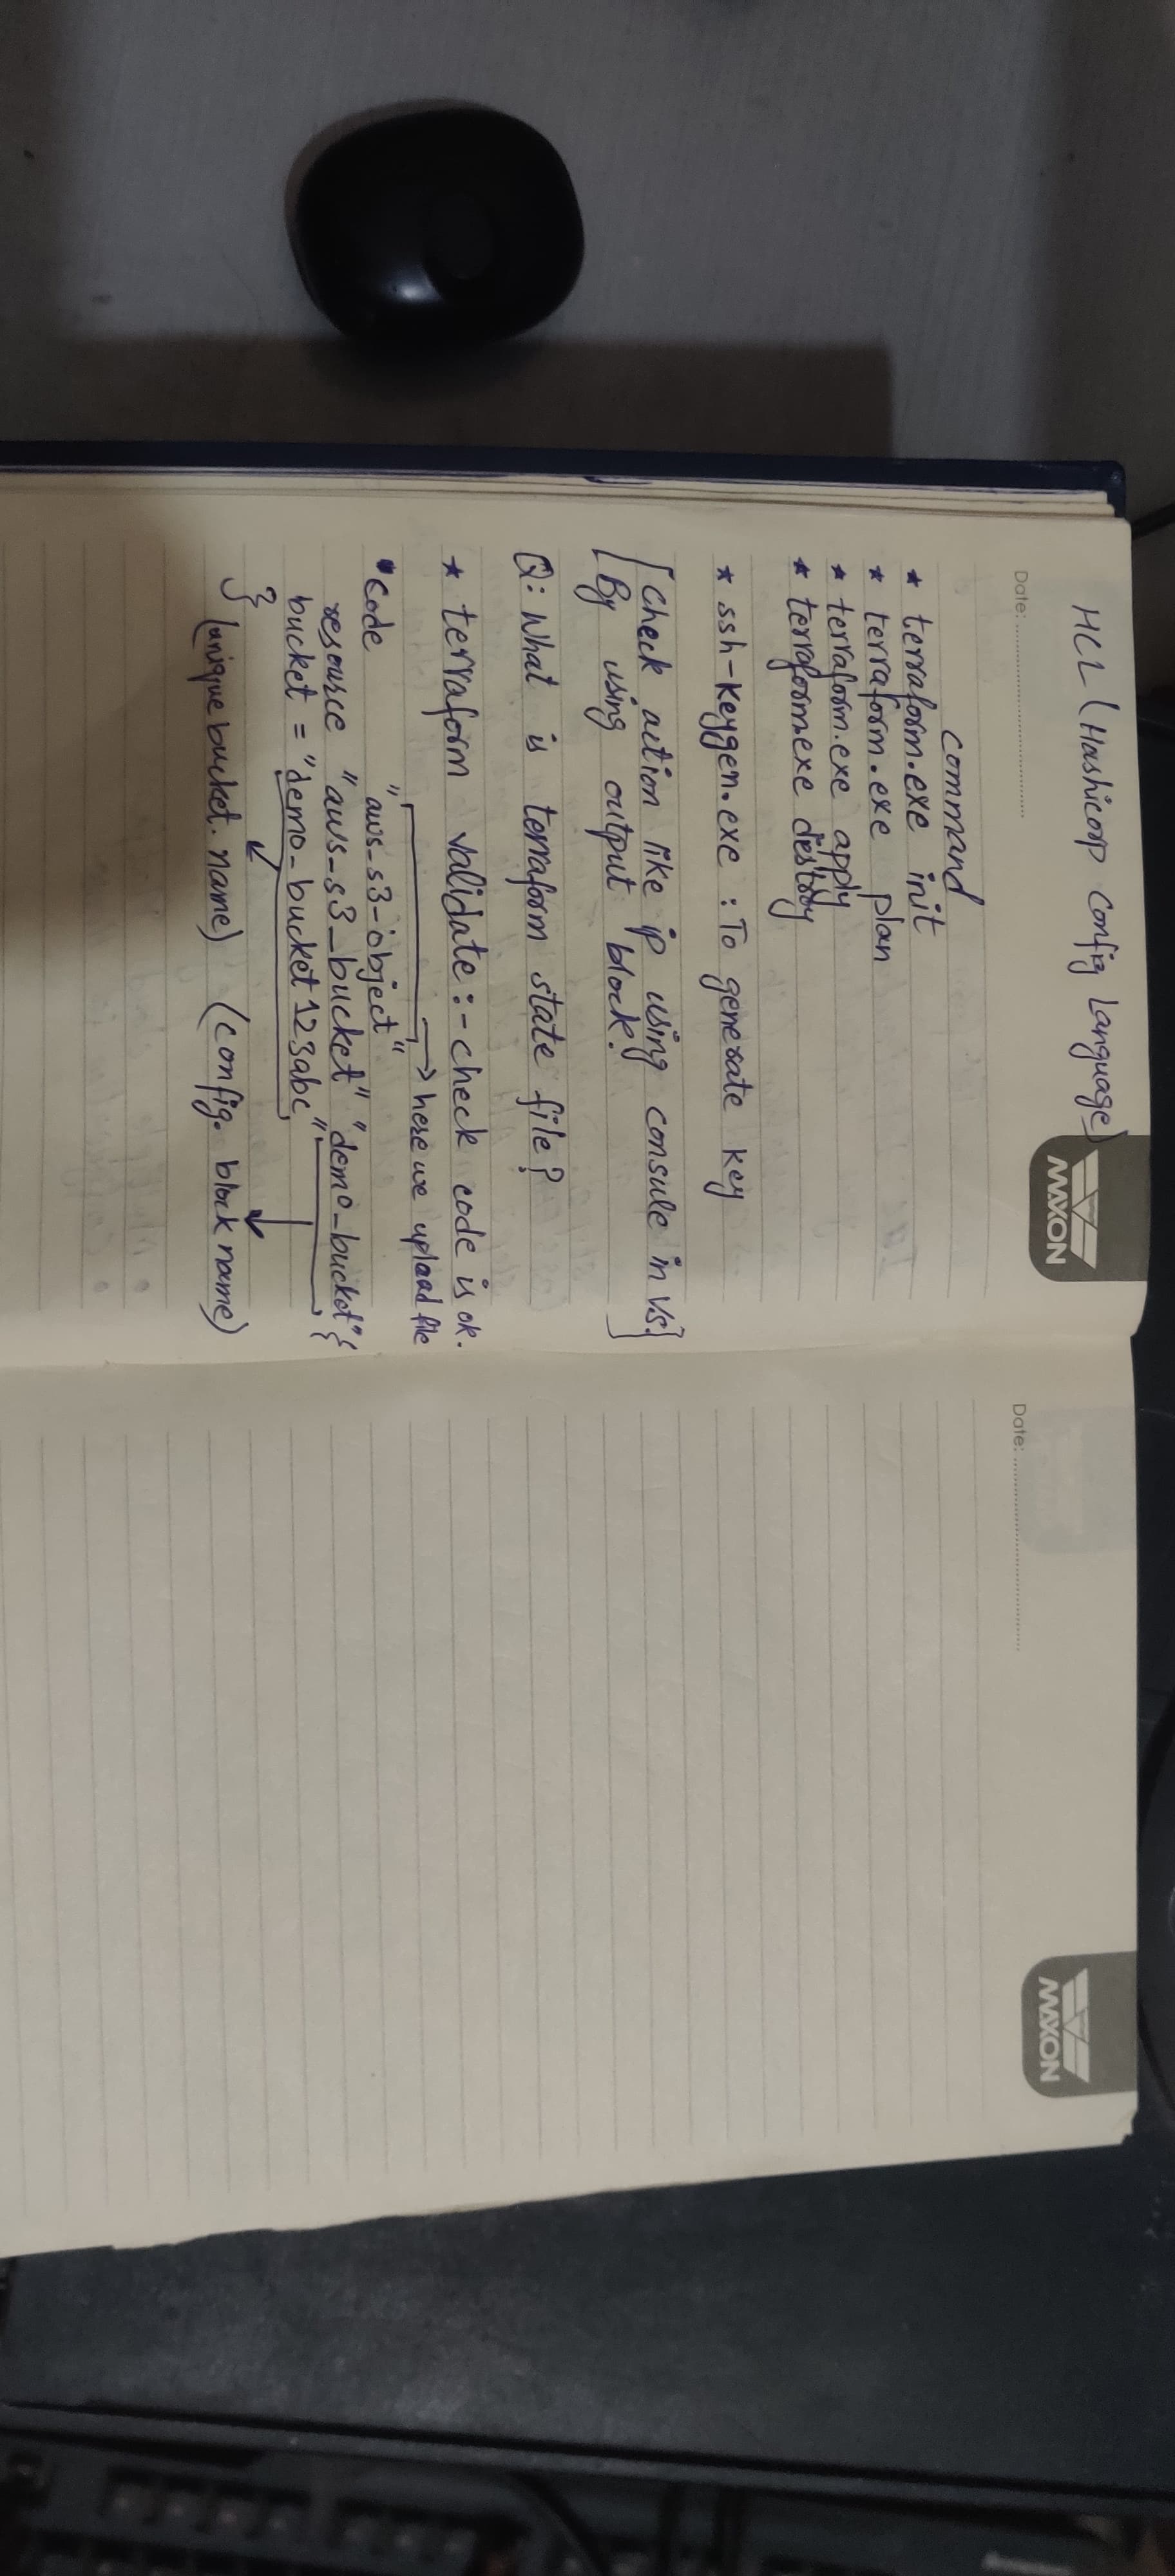 HCL (Hashicorp Config Language)
MAXON
Date:
command
* terraform.exe init
* terraform.exe plan
* terraform.exe apply
* terraform.exe destroy
* ssh-keygen.exe : To generate key
[Check action like ip using consule in VS.]
[By using output block.]
Q: What is terraform state file?
* terraform validate :- check code is ok.
→ here we upload file
"aws-s3-object"
* Code
resource "aws_s3_bucket" "demo_bucket" {
bucket = "demo_bucket123abc"
}
(unique bucket. name) (config. block name)
Date:
MAXON